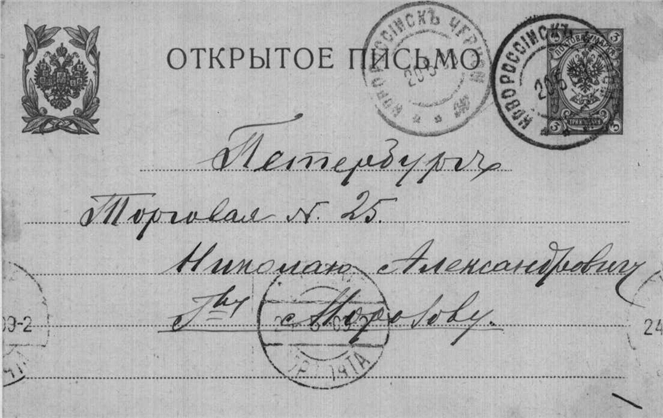 ОТКРЫТОЕ ПИСЬМО
НОВОРОССІЙСКЪ ЧЕРНОМ
20.5
НОВОРОССІЙСК
20.5
3
3
Петербургъ
Торговая N. 25.
Николаю Александровичу
Г-ну Морозову.
09-2
24